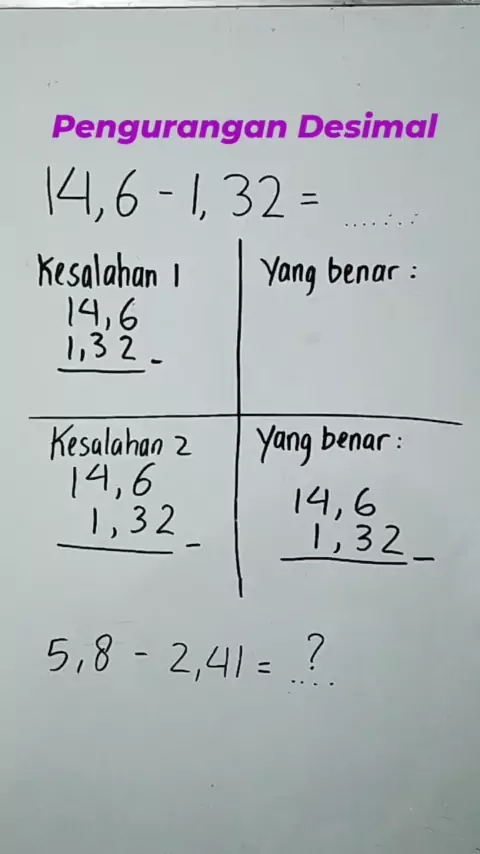 Pengurangan Desimal
14,6 - 1,32 = .......
Kesalahan 1
14,6
1,32 -
Yang benar :
Kesalahan 2
14,6
1,32 -
Yang benar :
14,6
1,32 -
5,8 - 2,41 = ?
....